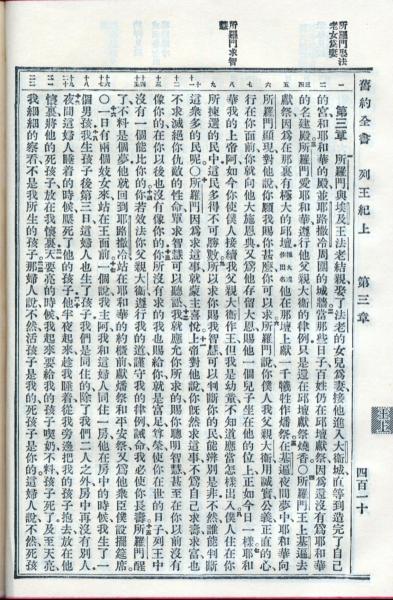 所羅門娶法
老女爲妻
所羅門求智
慧
舊約全書　列王紀上　第三章　四百一十
王上
第三章　所羅門與埃及王法老結親娶了法老的女兒爲妻接他進入大衞城直等到造完了自己
的宮和耶和華的殿並耶路撒冷周圍的城牆當那些日子百姓仍在邱壇獻祭因爲還沒有爲耶和華
的名建殿所羅門愛耶和華遵行他父親大衞的律例只是還在邱壇獻祭燒香○所羅門王上基遍去
獻祭因爲在那裏有極大的邱壇極大或作出名他在那壇上獻一千犧牲作燔祭在基遍夜間夢中耶和華向
所羅門顯現對他說你願我賜你甚麽你可以求所羅門說你僕人我父親大衞用誠實公義正直的心
行在你面前你就向他大施恩典又爲他存留大恩賜他一個兒子坐在他的位上正如今日一樣耶和
華我的上帝阿如今你使僕人接續我父親大衞作王但我是幼童不知道應當怎樣出入僕人住在你
所揀選的民中這民多得不可勝數所以求你賜我智慧可以判斷你的民能辨別是非不然誰能判斷
這衆多的民呢○所羅門因爲求這事就蒙主喜悅上帝對他說你旣然求這事不爲自己求壽求富也
不求滅絕你仇敵的性命單求智慧可以聽訟我就應允你所求的賜你聰明智慧甚至在你以前沒有
像你的在你以後也沒有像你的你所沒有求的我也賜給你就是富足尊榮使你在世的日子列王中
沒有一個能比你的你若效法你父親大衞遵行我的道謹守我的律例誡命我必使你長壽所羅門醒
了不料是個夢他就回到耶路撒冷站在耶和華的約櫃前獻燔祭和平安祭又爲他衆臣僕設擺筵席
○一日有兩個妓女來站在王面前一個說我主阿我和這婦人同住一房他在房中的時候我生了一
個男孩我生孩子後第三日這婦人也生了孩子我們是同住的除了我們二人之外房中再沒有別人
夜間這婦人睡着的時候壓死了他的孩子他半夜起來趁我睡着從我旁邊把我的孩子抱去放在他
懷裏將他的死孩子放在我懷裏天要亮的時候我起來要給我的孩子喫奶不料孩子死了及至天亮
我細細的察看不是我所生的孩子那婦人說不然活孩子是我的死孩子是你的這婦人說不然死孩